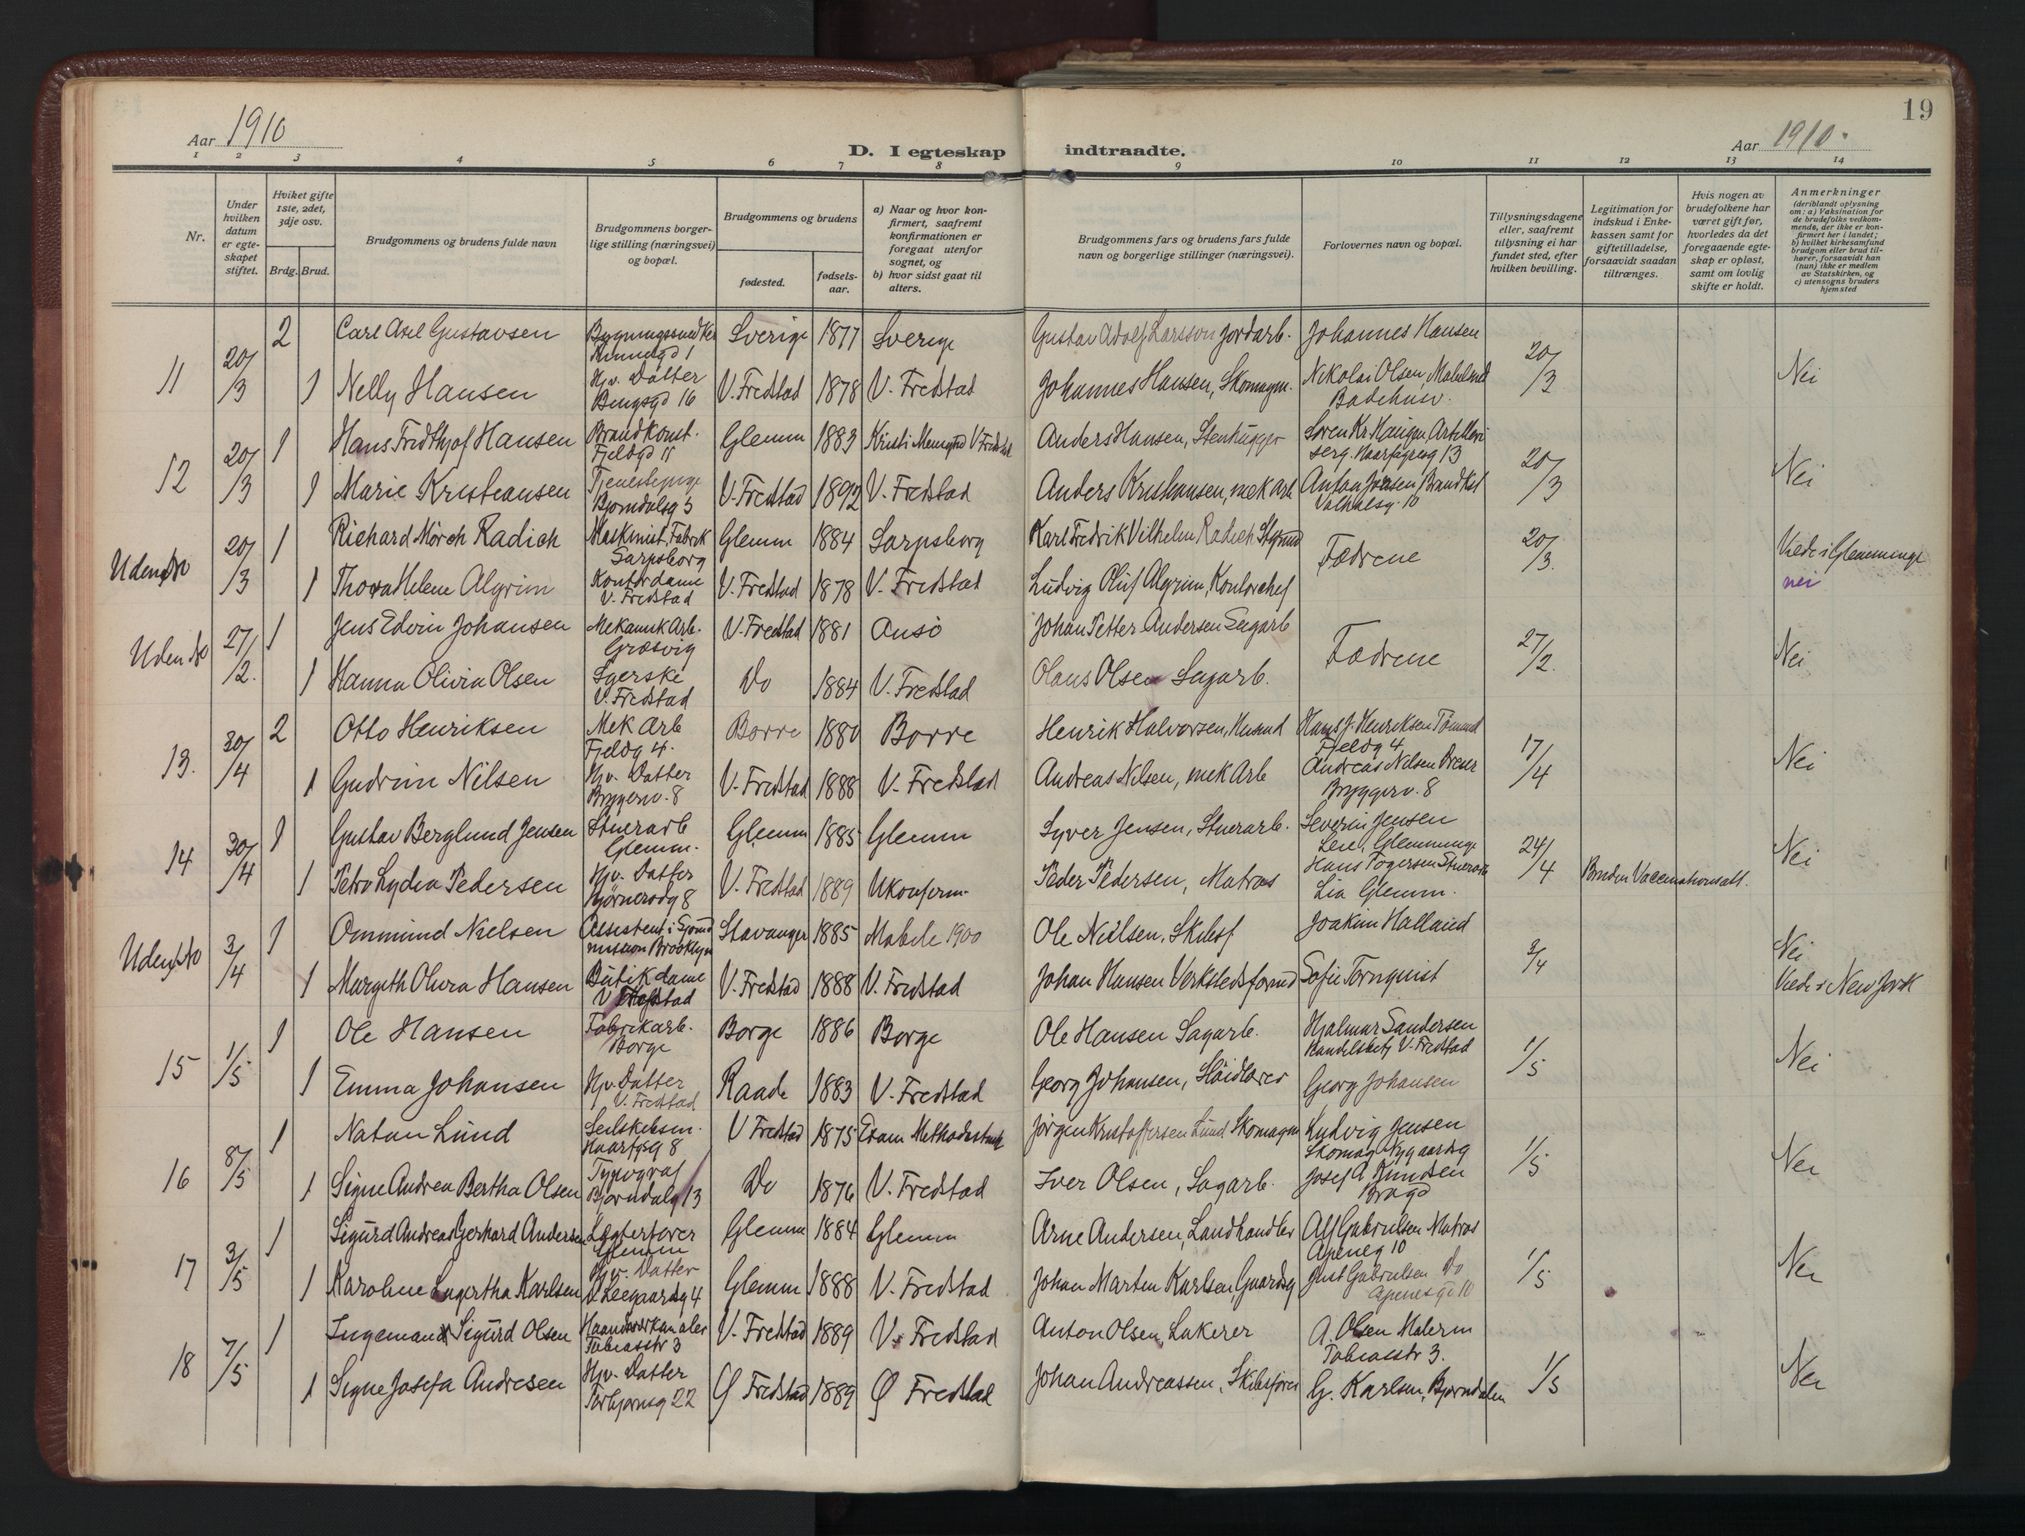 19
Aar 1910
D. I egteskap indtraadte.
Aar 1910.
1 2 3 4 5 6 7 8 9 10 11 12 13 14
Nr.
Under hvilken datum er egteskapet stiftet.
Hviket gifte 1ste, 2det, 3dje osv.
Brdg. Brud.
Brudgommens og brudens fulde navn
Brudgommens borgerlige stilling (næringsvei) og bopæl.
Brudgommens og brudens
fødested. fødselsaar.
a) Naar og hvor konfirmert, saafremt konfirmationen er foregaat utenfor sognet, og
b) hvor sidst gaat til alters.
Brudgommens fars og brudens fars fulde navn og borgerlige stillinger (næringsvei).
Forlovernes navn og bopæl.
Tillysningsdagene eller, saafremt tillysning ei har fundet sted, efter hvilken bevilling.
Legitimation for indskud i Enkekassen samt for giftetilladelse, forsaavidt saadan tiltrænges.
Hvis nogen av brudefolkene har været gift før, hvorledes da det foregaaende egteskap er opløst, samt om lovlig skifte er holdt.
Anmerkninger (deriblandt oplysning om: a) Vaksination for de brudefolks vedkommende, der ikke er konfirmert her i landet; b) hvilket kirkesamfund brudgom eller brud tilhører, forsaavidt han (hun) ikke er medlem av Statskirken, og c) utensogns bruders hjemsted
11 20/3 2 Carl Axel Gustavsen Sverige 1877 Sverige Gustav Adolf Larsson Jordarb. Johannes Hansen 20/3 Nei
1 Nelly Hansen Hjv. Datter V. Fredstad 1878 V. Fredstad Johannes Hansen, Skomagm. Nikolai Olsen,
12 20/3 1 Hans Fridthjof Hansen Brandkonst. Fjeldgd Glemm 1883 V Fredstad Anders Hansen, Stenhugger Søren Kr. Haugen, Artilleri serg. Haarfagreng 13 20/3 Nei
1 Marie Kristiansen Tjenestepige Bjørndalsg 3 V. Fredstad 1892 V. Fredstad Anders Kristiansen, mek Arb Anton Jensen Brandkst Valhalsg 10
Uden No 20/3 1 Richard Mörch Radich Maskinist, Fabrik Sarpsborg Glemm 1884 Sarpsborg Karl Fredrik Vilhelm Radich Fædrene 20/3. Viede i Glemminge nei
1 Thora Helene Algrim Kontordame V. Fredstad V. Fredstad 1878 V. Fredstad Ludvig Oluf Algrim, Kontorchef
Uden No 27/2. 1 Jens Edvin Johansen Mekanik Arb. Græsvig V. Fredstad 1881 Onsö Johan Petter Andersen Sagarb Fædrene 27/2. Nei
1 Hanna Olivia Olsen Syerske V. Fredstad Do 1884 V. Fredstad Olaus Olsen Sagarb.
13. 30/4 2 Otto Henriksen Mek Arb Fjeldg 4. Borre 1880 Borre Henrik Halvorsen, Hans J. Henriksen Fjeldg 4 17/4 Nei
1 Gudrun Nilsen Hjv. Datter Bryggerv. 8 V. Fredstad 1888 V. Fredstad Andreas Nilsen, mek Arb Andreas Nilsen Bryggerv. 8
14 30/4 1 Gustav Berglund Jensen Stuerarb Glemm. Glemm 1885 Glemm Syver Jensen, Stuerarb. Severin Jensen Glemminge 24/4 Nei
1 Petra Lydia Pedersen Hjv. Datter Bjørnerødg 8 V. Fredstad 1889 Ukonferm. Peder Pedersen, Matros Hans Togersen Stuerarb Lia Glemm. Bruden Vaccinationsatt.
Uden No 3/4 1 Ommund Nielsen Assistent i Sjömdmission Brooklyn Stavanger 1885 1900 Ole Nielsen, Joakim Halland 3/4 Nei
1 Margith Olivia Hansen Butikdame V Fredstad V. Fredstad 1888 V. Fredstad Johan Hansen Verkstedsformd Sofie Tornquist Viede i New York
15 1/5 1 Ole Hansen Fabrikarb. Borge Borge 1886 Borge Ole Hansen Sagarb. Hjalmar Sandersen V. Fredstad 1/5 Nei
1 Emma Johansen Hjv. Datter V. Fredstad Raade 1883 V. Fredstad Georg Johansen, Georg Johansen
16 8/5 1 Natan Lund Haarfgsg 8 V Fredstad 1875 Jörgen Kristoffersen Lund Skomagm Ludvig Jensen Skomag Nygaardsg 1/5 Nei
1 Signe Andrea Bertha Olsen Typograf Bjørndalg 13 Do 1876 V. Fredstad Iver Olsen, Sagarb. Josef A. Knudsen
17 3/5 1 Sigurd Andreas Gerhard Andersen Lægterfører Glemm Glemm 1884 Glemm Arne Andersen, Landhandler Alf Gabrielsen Matros Apeneg 10 1/5 Nei
1 Karoline Lagertha Karlsen Hjv. Datter Leegaardsg 4 Glemm 1888 V. Fredstad Johan Marten Karlsen, Just Gabrielsen Do Apenesgt 10
18 7/5 1 Ingemand Sigurd Olsen Tobiasstr 3 V. Fredstad 1889 V. Fredstad Anton Olsen, Lakerer A. Olsen Malerm Tobiasstr 3. 1/5 Nei
1 Signe Josefa Andresen Hjv. Datter Torbjørnsg 22 Ø Fredstad 1889 Ø Fredstad Johan Andreassen, Skibsfører G. Karlsen, Bjørndalen